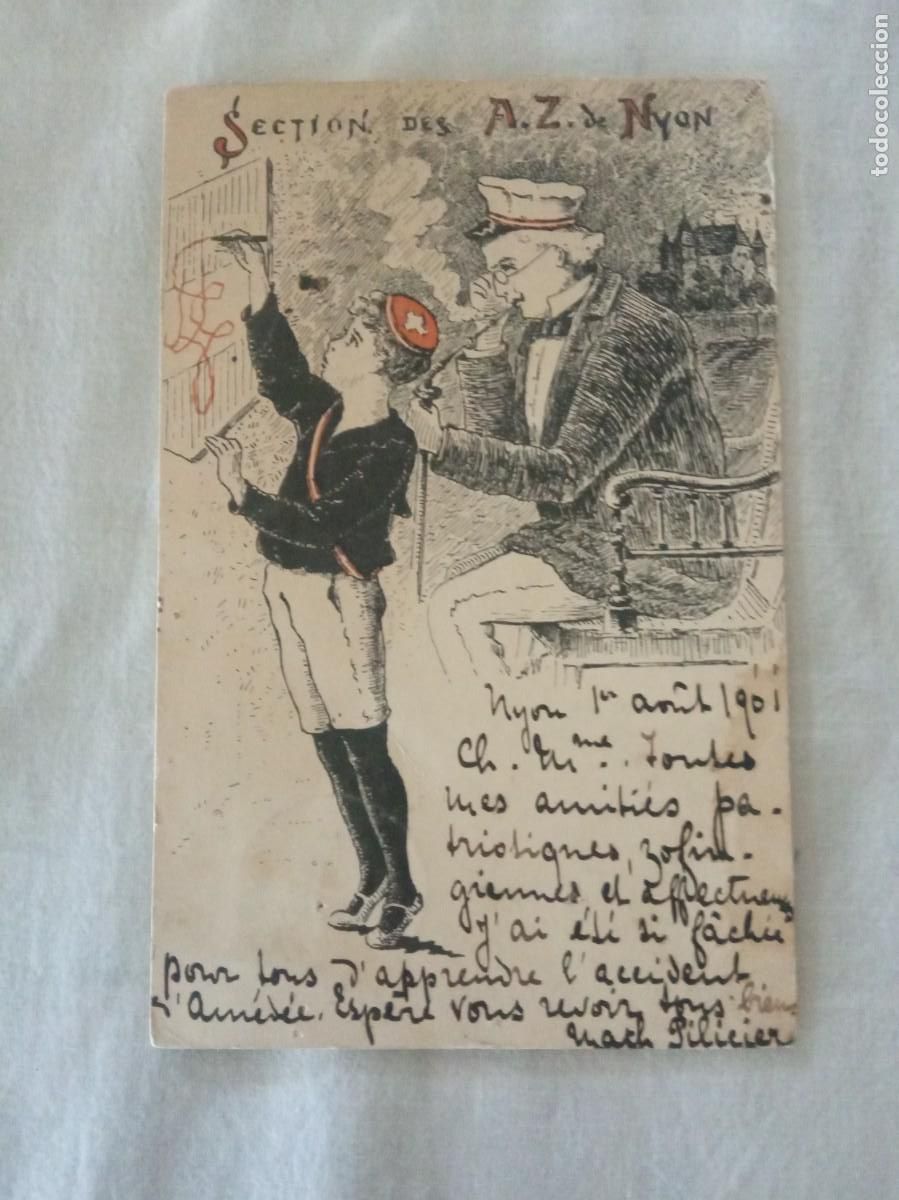 Section des A.Z. de Nyon
Nyon 1er août 1901
Ch. Mme. Toutes
mes amitiés pa-
triotiques, zofin-
giennes et affectueuses
J'ai été si fâchée
pour tous d'apprendre l'accident
d'Amédée. Espère vous revoir tous bien
Pilicier
todocoleccion